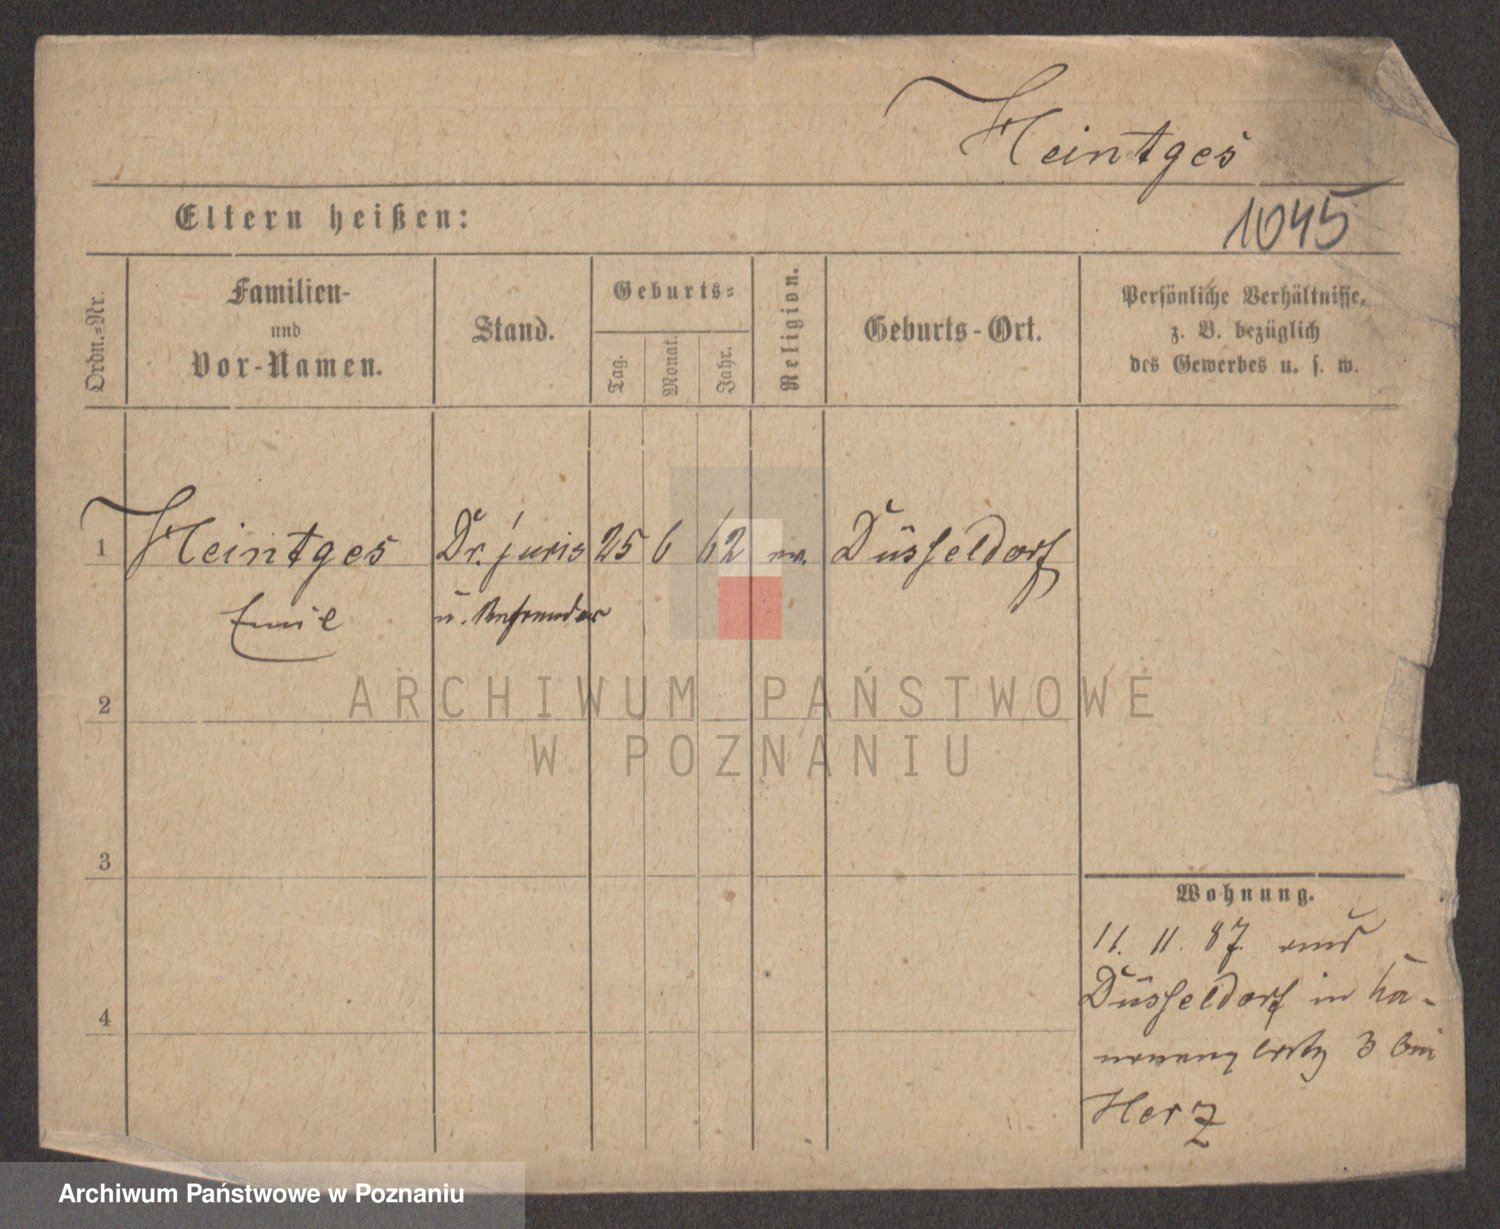 Heintges
Eltern heißen:
1045
Ordn.-Nr.
Familien-
und
Vor-Namen.
Stand.
Geburts-
Tag.
Monat.
Jahr.
Religion.
Geburts-Ort.
Persönliche Verhältnisse,
z. B. bezüglich
des Gewerbes u. s. w.
1 Heintges Dr. juris 25 6 62 Düsseldorf
Emil u. Referendar
ARCHIWUM PAŃSTWOWE
W POZNANIU
2
3
4
Wohnung.
11. 11. 87. aus
Düsseldorf in
3 bei
Herz
Archiwum Państwowe w Poznaniu